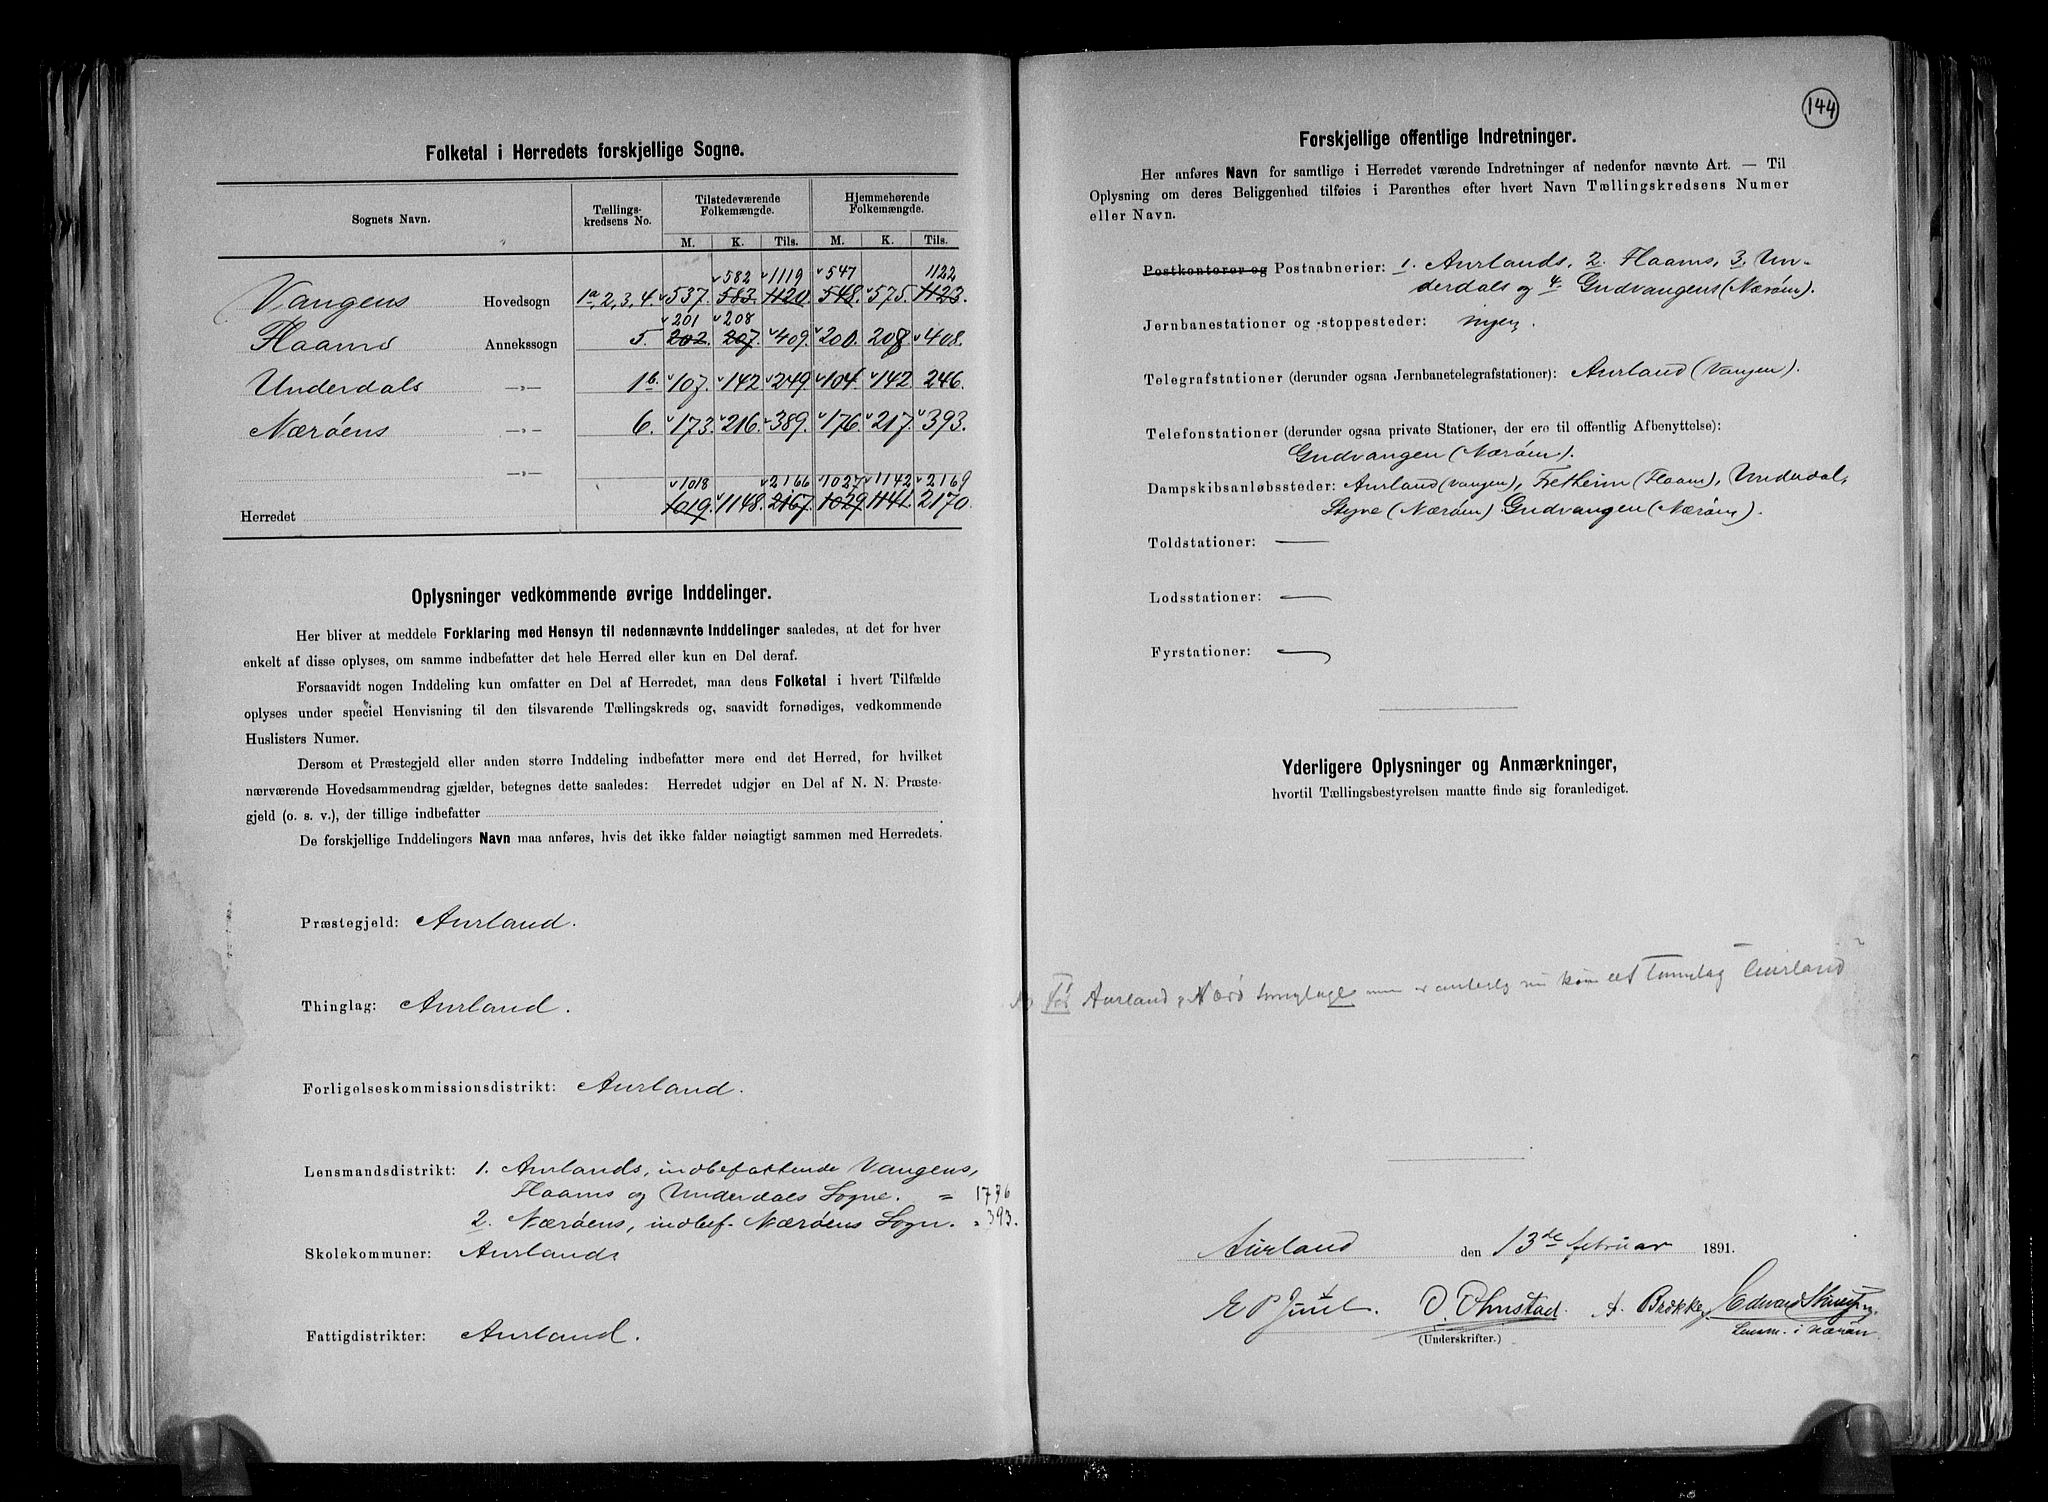 Folketal i Herredets forskjellige Sogne.
Sognets Navn. Tællings-kredsens No. Tilstedeværende Folkemængde. Hjemmehørende Folkemængde.
M. K. Tils. M. K. Tils.
582 1119 547 1122
Vangens Hovedsogn 1a, 2, 3, 4. 537. 583. 1120 548. 575. 1123.
201 208
Flaams Annekssogn 5. 202. 207. 409. 200. 208. 408.
Underdals —„— 1b. 107. 142. 249. 104. 142. 246.
Nærøens —„— 6. 173. 216. 389. 176. 217. 393.
—„—
1018 2166 1027 1142 2169
Herredet 1019. 1148. 2167. 1029 1141. 2170.
Oplysninger vedkommende øvrige Inddelinger.
Her bliver at meddele Forklaring med Hensyn til nedennævnte Inddelinger saaledes, at det for hver
enkelt af disse oplyses, om samme indbefatter det hele Herred eller kun en Del deraf.
Forsaavidt nogen Inddeling kun omfatter en Del af Herredet, maa dens Folketal i hvert Tilfælde
oplyses under speciel Henvisning til den tilsvarende Tællingskreds og, saavidt fornødiges, vedkommende
Huslisters Numer.
Dersom et Præstegjeld eller anden større Inddeling indbefatter mere end det Herred, for hvilket
nærværende Hovedsammendrag gjælder, betegnes dette saaledes: Herredet udgjør en Del af N. N. Præste-
gjeld (o. s. v.), der tillige indbefatter
De forskjellige Inddelingers Navn maa anføres, hvis det ikke falder nøiagtigt sammen med Herredets.
Præstegjeld: Aurland.
Thinglag: Aurland.
Forligelseskommissionsdistrikt: Aurland.
Lensmandsdistrikt: 1. Aurlands, indbefattende Vangens,
Flaams og Underdals Sogne. = 1776
2. Nærøens, indbef. Nærøens Sogn. = 393.
Skolekommuner: Aurlands
Fattigdistrikter: Aurland.
144
Forskjellige offentlige Indretninger.
Her anføres Navn for samtlige i Herredet værende Indretninger af nedenfor nævnte Art. — Til
Oplysning om deres Beliggenhed tilføies i Parenthes efter hvert Navn Tællingskredsens Numer
eller Navn.
Postkontorer og Postaabnerier: 1. Aurlands, 2. Flaams, 3. Un-
derdals og 4. Gudvangens (Nærøen).
Jernbanestationer og -stoppesteder: ingen.
Telegrafstationer (derunder ogsaa Jernbanetelegrafstationer): Aurland (Vangen).
Telefonstationer (derunder ogsaa private Stationer, der ere til offentlig Afbenyttelse):
Gudvangen (Nærøen).
Dampskibsanløbssteder: Aurland (Vangen), Fretheim (Flaam), Underdal,
Styve (Nærøen) Gudvangen (Nærøen).
Toldstationer: —
Lodsstationer: —
Fyrstationer: —
Yderligere Oplysninger og Anmærkninger,
hvortil Tællingsbestyrelsen maatte finde sig foranlediget.
Før Aurland, Nærø nu kun et Aurland
Aurland den 13de februar 1891.
E P Juul. O. Ohnstad. A. Brekke Edvard
Lensm. i Nærøen.
(Underskrifter.)